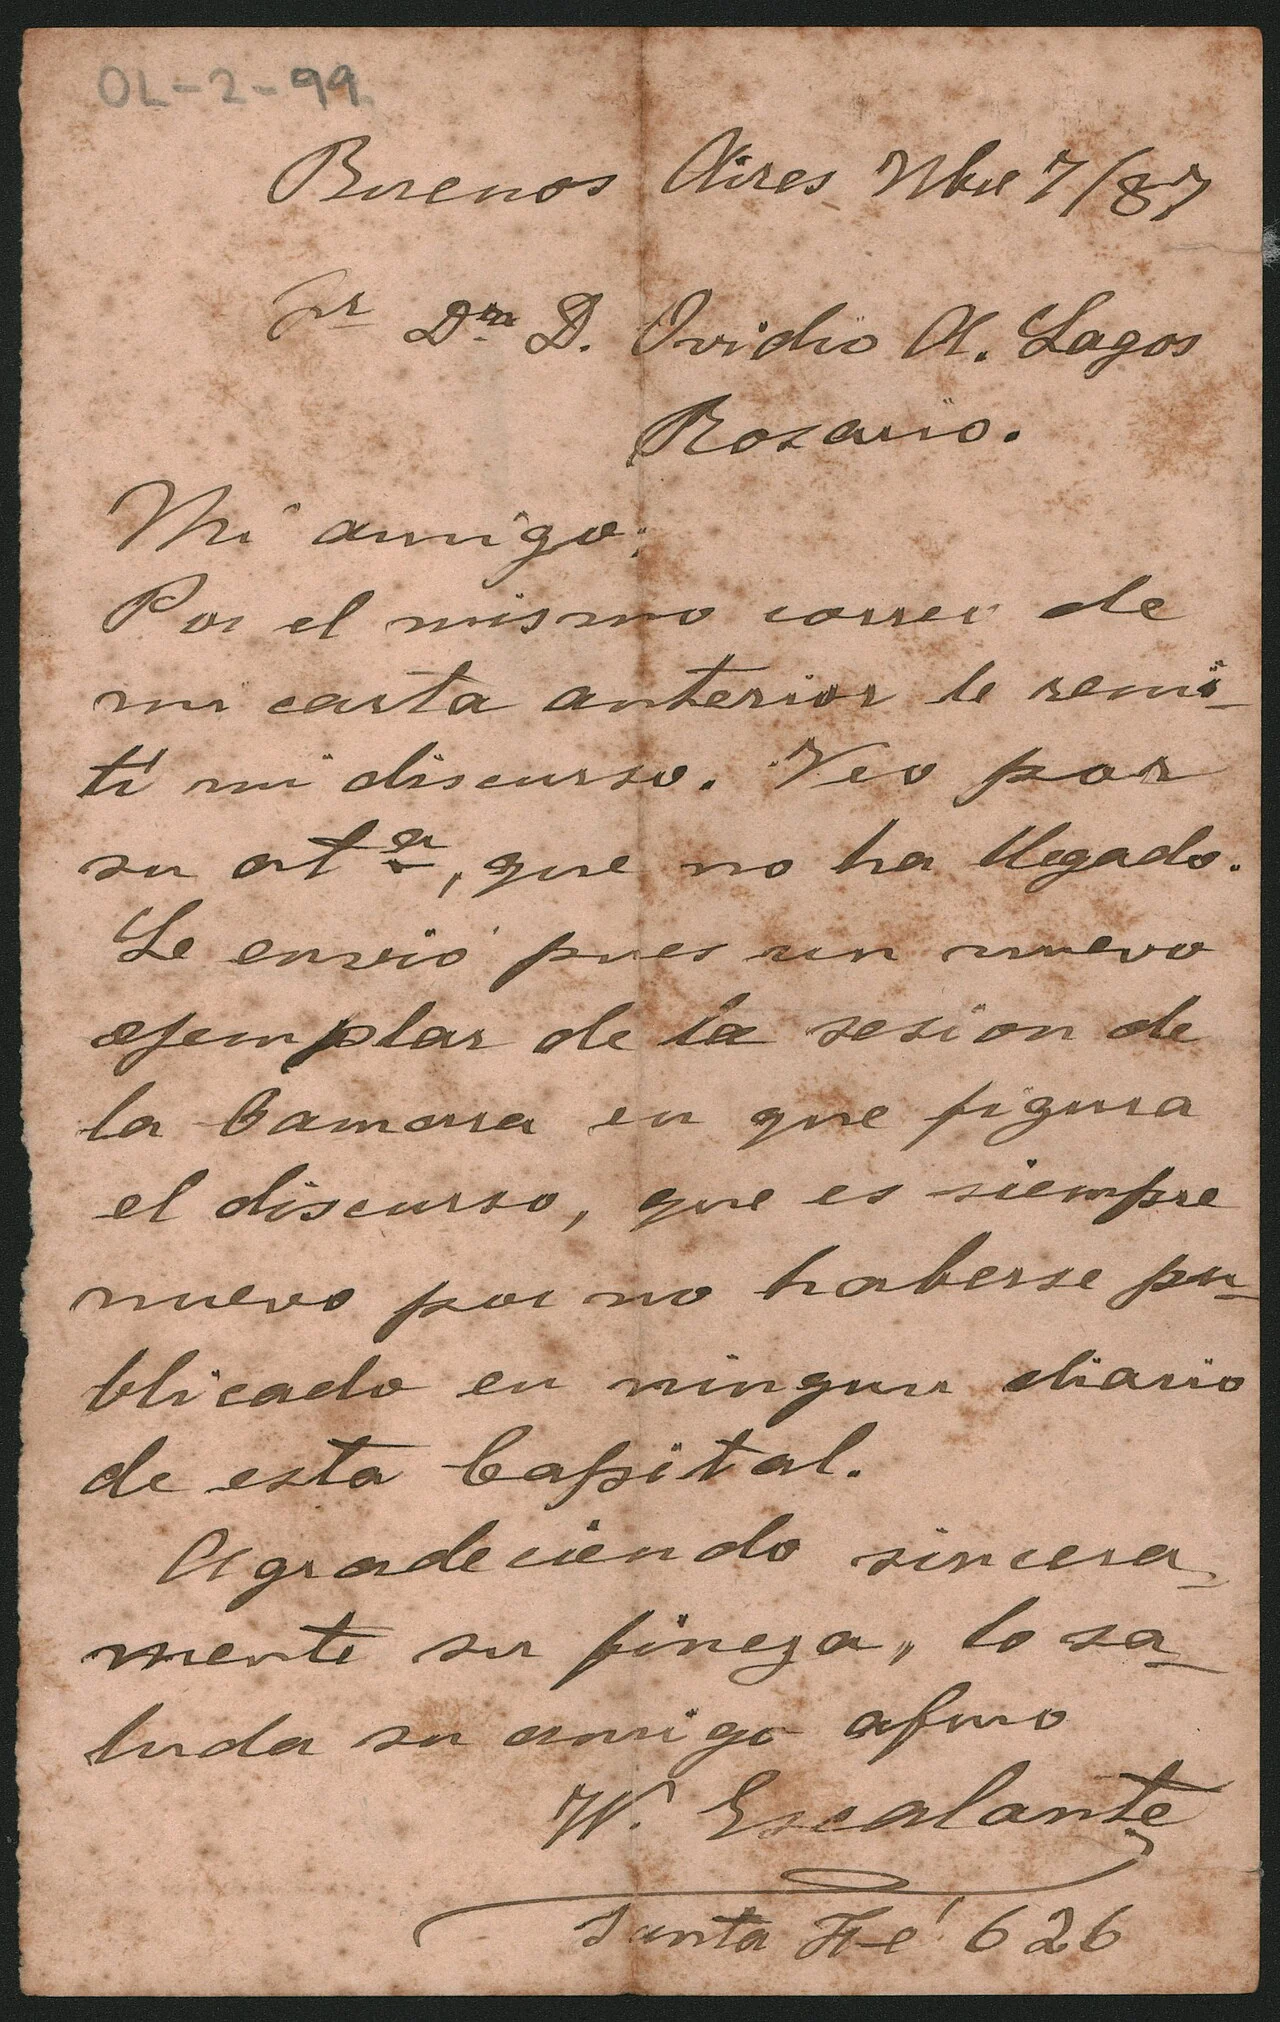 OL-2-99.
Buenos Aires Nbre 7/87
Sr Dn D. Ovidio A. Lagos
Rosario.
Mi amigo:
Por el mismo correo de
mi carta anterior le remi-
tí mi discurso. Veo por
su atª, que no ha llegado.
Le envio pues un nuevo
ejemplar de la sesion de
la Camara en que figura
el discurso, que es siempre
nuevo por no haberse pu-
blicado en ningun diario
de esta Capital.
Agradeciendo sincera-
mente su fineza, lo sa-
luda su amigo afmo
W. Escalante
Santa Fé 626